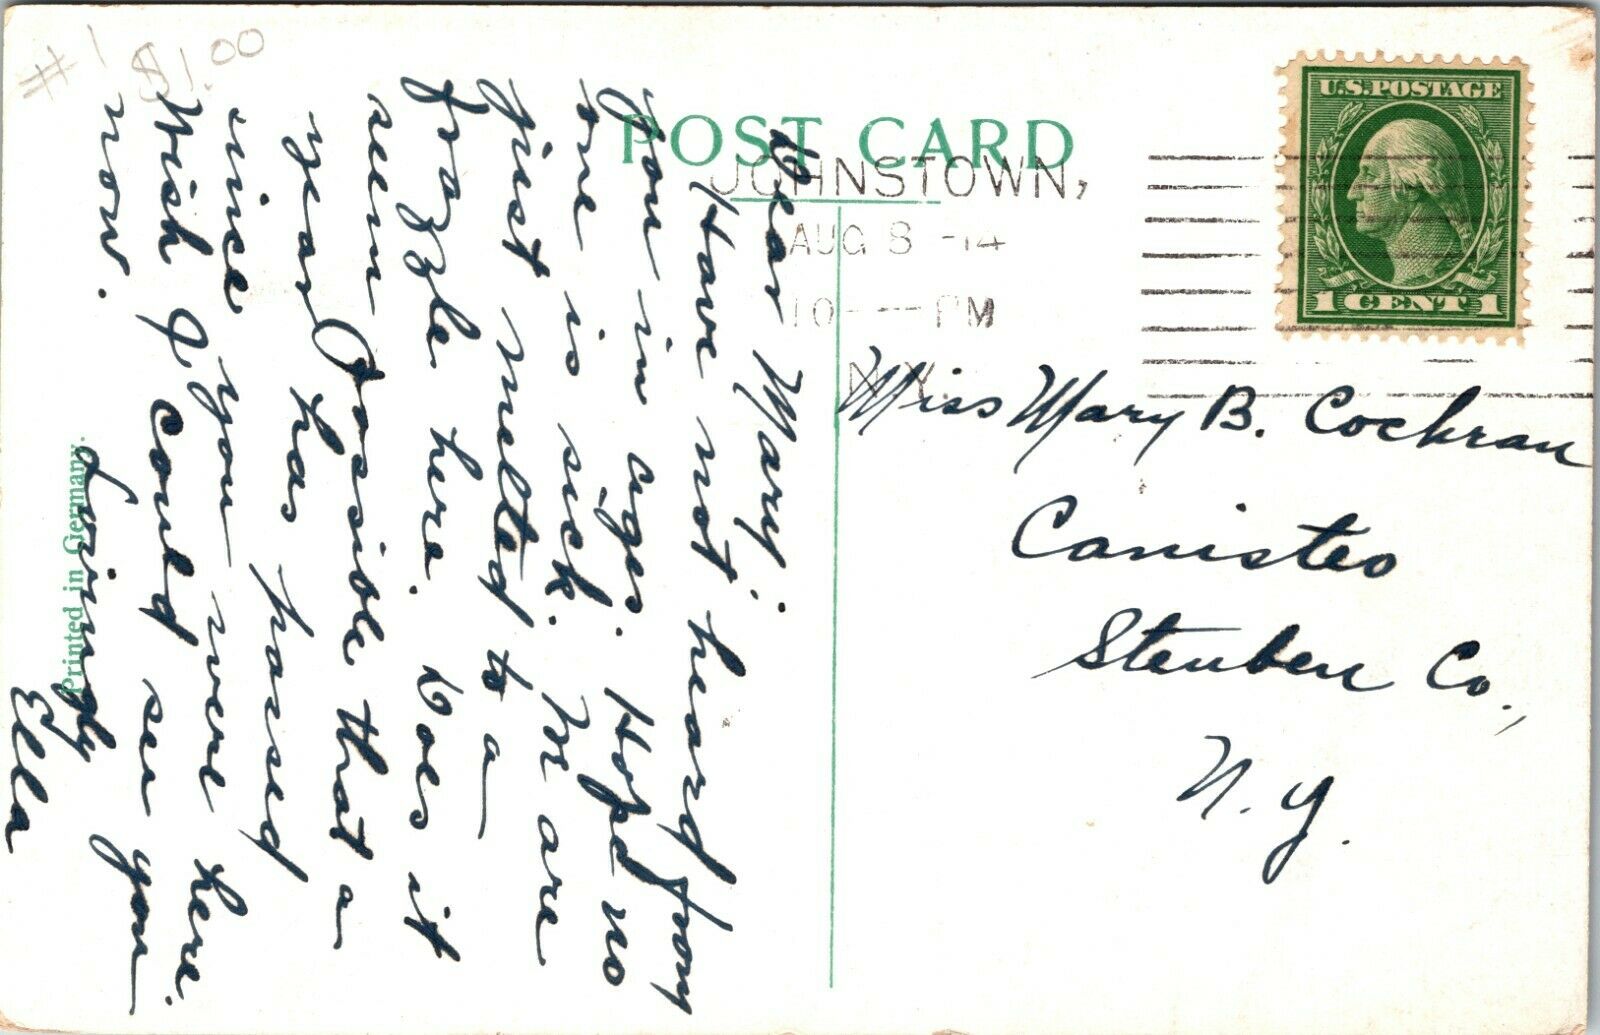 #1 $1.00
POST CARD
JOHNSTOWN,
AUG 8 -14
10 -- PM
N.Y.
U.S. POSTAGE
1 CENT 1
Miss Mary B. Cochran
Canisteo
Steuben Co.,
N.Y.
Dear Mary;
Have not heard from
you in ages. Hope no
one is sick. We are
just melted to a
frazzle here. Does it
seem possible that a
year has passed
since you were here.
Wish I could see you
now.
Lovingly
Ella
Printed in Germany.